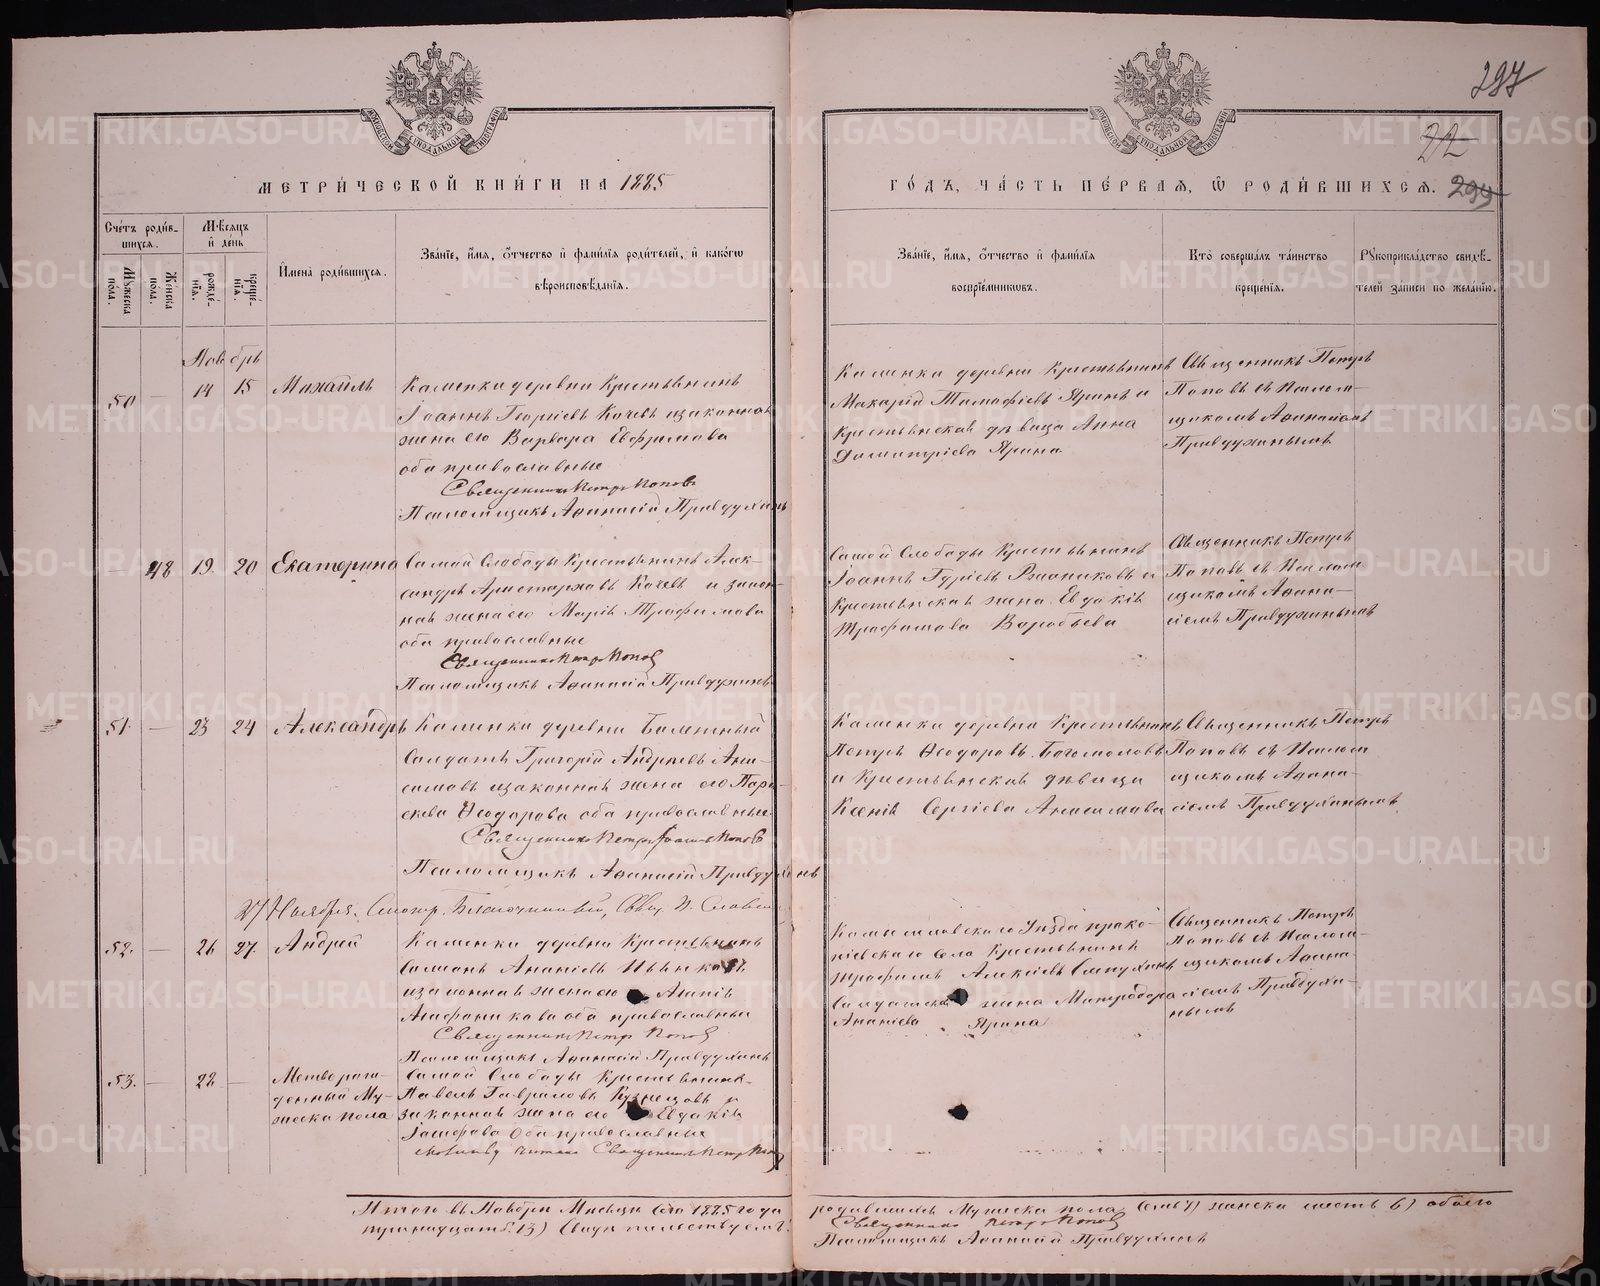 297
22
299
МЕТРИ́ЧЕСКОЙ КНИ́ГИ НА 1885
ГО́ДЪ, ЧА́СТЬ ПЕ́РВАЯ, Ѽ РОДИ́ВШИХСЯ.
Сче́тъ роди́в-
шихся.
Мѣ́сяцъ
и҆ де́нь
Мꙋ́жеска
по́ла.
Же́нска
по́ла.
рожде́-
нїѧ.
креще́-
нїѧ.
И҆мена̀ роди́вшихся.
Зва́нїе, и҆́мѧ, ѻ҆́тчество и҆ фами́лїѧ роди́телей, и҆ како́гѡ
вѣроисповѣ́данїѧ.
Зва́нїе, и҆́мѧ, ѻ҆́тчество и҆ фами́лїѧ
воспрїе́мниковъ.
Кто̀ соверша́лъ та́инство
креще́нїѧ.
Рꙋкоприкла́дство свидѣ́-
телей за́писи по жела́нїю.
Ноябрь
50 — 14 15 Михаилъ
Каменки деревни Крестьянинъ
Іоаннъ Георгіевъ Качевъ и законная
жена его Варвара Евфимова
оба православные
Священникъ Петръ Поповъ
Псаломщикъ Афанасій Правдухинъ
Каменки деревни Крестьянинъ
Макарій Тимофіевъ Яринъ и
Крестьянская дѣвица Анна
Димитріева Ярина
Священникъ Петръ
Поповъ съ Псалом-
щикомъ Афанасіемъ
Правдухинымъ
48 19 20 Екатерина
Самой Слободы Крестьянинъ Алек-
сандръ Аристарховъ Качевъ и закон-
ная жена его Марія Трофимова
оба православные
Священникъ Петръ Поповъ
Псаломщикъ Афанасій Правдухинъ
Самой Слободы Крестьянинъ
Іоаннъ Гуріевъ и
Крестьянская жена Евдокія
Трофимова Воробьева
Священникъ Петръ
Поповъ съ Псалом-
щикомъ Афана-
сіемъ Правдухинымъ
51. — 23 24 Александръ
Каменки деревни Билетный
Солдатъ Григорій Андреевъ Ани-
симовъ и законная жена его Пара-
скева Ѳеодорова оба православные
Священникъ Петръ Поповъ
Псаломщикъ Афанасій Правдухинъ
Каменки деревни Крестьянинъ
Петръ Ѳеодоровъ Богомоловъ
и Крестьянская дѣвица
Ксенія Сергіева Анисимова
Священникъ Петръ
Поповъ съ Псалом
щикомъ Афана-
сіемъ Правдухинымъ
27 Ноября. Смотр. Благочинный, Свящ.
52. — 26 27. Андрей
Каменки деревни Крестьянинъ
Симеонъ Ананіевъ
и законная жена его Агапія
Агафоникова оба православные
Священникъ Петръ Поповъ
Псаломщикъ Афанасій Правдухинъ
Камышловскаго Уѣзда проко-
піевскаго села Крестьянинъ
Трофимъ Алексіевъ
Солдатская жена Митродора
Ананіева Ярина
Священникъ Петръ
Поповъ съ Псалом-
щикомъ Афана-
сіемъ Правдухи-
нымъ
53. — 28 — Мертворож-
денный Му-
жеска пола
Самой Слободы Крестьянинъ
Павелъ Гавриловъ Кузнецовъ и
законная жена его Евдокія
Іосифова Оба православные
Молитву читалъ Священникъ Петръ Поповъ
Итого въ Ноябрѣ Мѣсяцѣ сего 1885 года
родившихся Мужеска пола семь 7) женска шесть 6) обоего
тринадцать 13)
Священникъ Петръ Поповъ
Псаломщикъ Афанасій Правдухинъ
METRIKI.GASO-URAL.RU